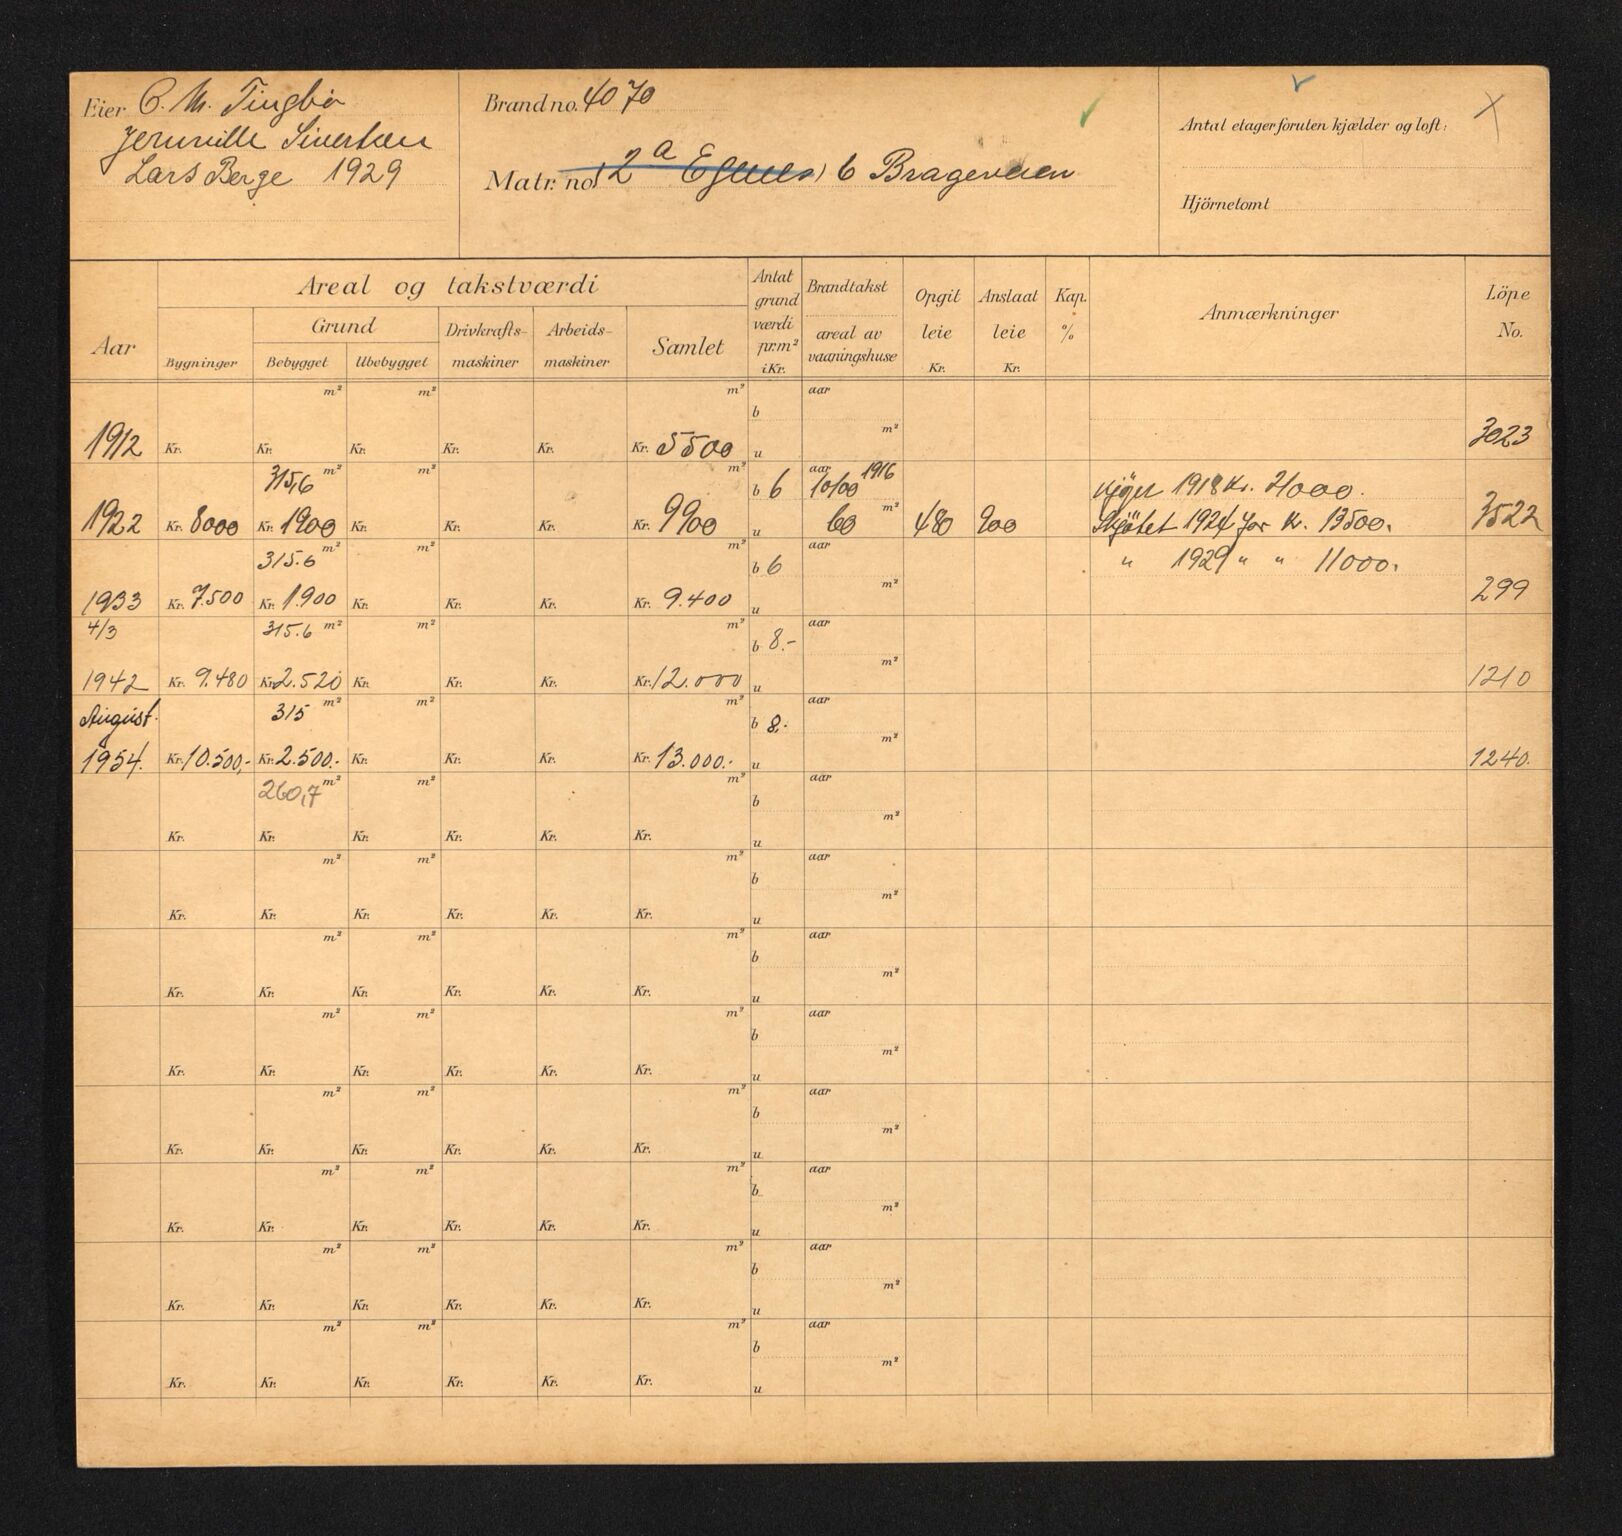 Eier C. M. Tingbö
Jernville Sivertsen
Lars Berge 1929
Brand no. 4070
Matr. no. (2a Egenes) 6 Brageveien
Antal etager foruten kjælder og loft: X
Hjörnetomt
Aar
Areal og takstværdi
Grund
Bygninger
Bebygget
Ubebygget
Drivkrafts-
maskiner
Arbeids-
maskiner
Samlet
Antat
grund
værdi
pr. m²
i Kr.
Brandtakst
areal av
vaaningshuse
Opgit
leie
Kr.
Anslaat
leie
Kr.
Kap.
%
Anmærkninger
Löpe
No.
m² m² m² b aar
m²
1912 Kr. Kr. Kr. Kr. Kr. Kr. 5500 u 3023
315,6 m² m² m² b 6 aar 1916
10100 1918 Kr. 21000.
1922 Kr. 8000 Kr. 1900 Kr. Kr. Kr. Kr. 9900 u 60 m² 480 900 Skjötet 1924 for Kr. 13500. 3522
315.6 m² m² m² b 6 aar " 1929 " " 11000.
m²
1933 Kr. 7.500 Kr. 1.900 Kr. Kr. Kr. Kr. 9.400 u 299
4/3 315.6 m² m² m² b 8.- aar
m²
1942 Kr. 9.480 Kr. 2.520 Kr. Kr. Kr. Kr. 12.000 u 1210
August. 315 m² m² m² b 8.- aar
m²
1954. Kr. 10.500,- Kr. 2.500.- Kr. Kr. Kr. Kr. 13.000.- u 1240.
260,7 m² m² m² b aar
m²
Kr. Kr. Kr. Kr. Kr. Kr. u
m² m² m² b aar
m²
Kr. Kr. Kr. Kr. Kr. Kr. u
m² m² m² b aar
m²
Kr. Kr. Kr. Kr. Kr. Kr. u
m² m² m² b aar
m²
Kr. Kr. Kr. Kr. Kr. Kr. u
m² m² m² b aar
m²
Kr. Kr. Kr. Kr. Kr. Kr. u
m² m² m² b aar
m²
Kr. Kr. Kr. Kr. Kr. Kr. u
m² m² m² b aar
m²
Kr. Kr. Kr. Kr. Kr. Kr. u
m² m² m² b aar
m²
Kr. Kr. Kr. Kr. Kr. Kr. u